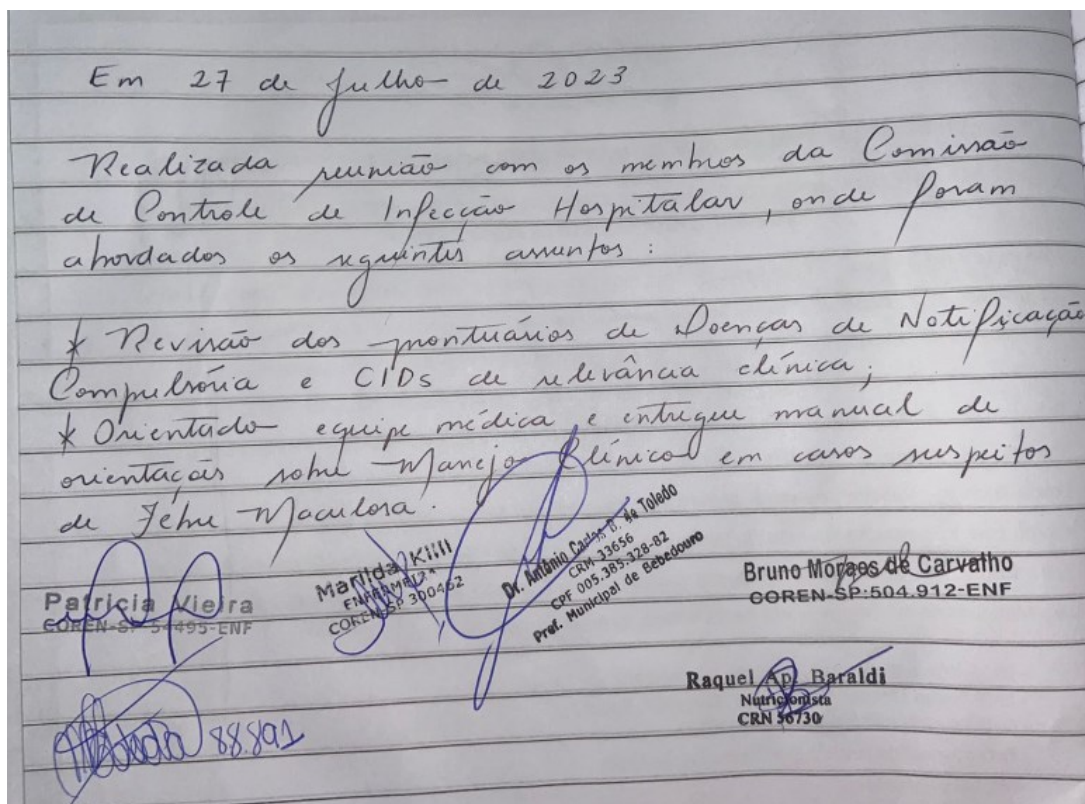 Em 27 de Julho de 2023
Realizada reunião com os membros da Comissão
de Controle de Infecção Hospitalar, onde foram
abordados os seguintes assuntos:
* Revisão dos prontuários de Doenças de Notificação
Compulsória e CIDs de relevância clínica;
* Orientado equipe médica e entregue manual de
orientação sobre Manejo Clínico em casos suspeitos
de Febre Maculosa.
Patricia Vieira
COREN-SP 54495-ENF
Marilda Killi
ENFERMEIRA
COREN-SP 300462
Dr. Antônio Carlos D. de Toledo
CRM 33656
CPF 005.385.328-82
Pref. Municipal de Bebedouro
Bruno Moraes de Carvalho
COREN-SP:504.912-ENF
Raquel Ap. Baraldi
Nutricionista
CRN 36730
88.891